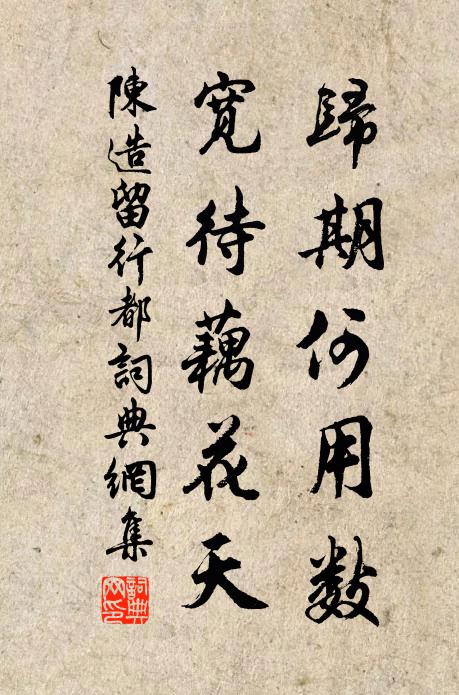 歸期何用數
寬待藕花天
陳造留行都詞典網集
詞典网印